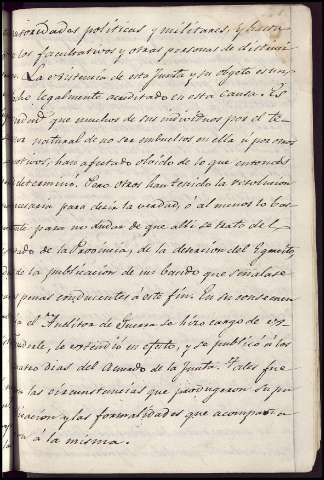 autoridades politicas y militares, y hasta
los facultativos y otras personas de distinci
La existencia de esta Junta y su objeto es un
cho legalmente acreditado en esta causa. Es
verdad que muchos de sus individuos por el te
or natural de no ser embueltos en ella ú por otros
otivos, han afectado olvido de lo que entonces
determinó. Pero otros han tenido la resolucion
cesaria para decir la verdad, ó al menos lo bas
nte para no dudar de que alli se trató del
tado de la Provincia, de la desercion del Egercito,
de la publicacion de un bando que señalase
s penas conducentes á este fin. En su consecuen
ia el Auditor de Guerra se hizo cargo de es
tenderle, le estendió en efecto, y se publicó á los
dias del Acuerdo de la Junta. Tales fue
n las circunstancias que produgeron su pu
licacion y las formalidades que acompaña
on á la misma.